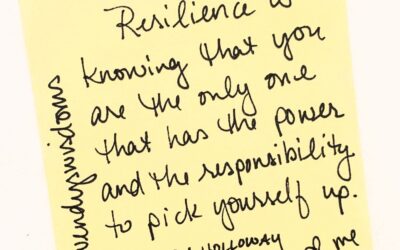 Resilience is
knowing that you
are the only one
that has the power
and the responsibility
to pick yourself up.
HOLLOWAY
me
wendyswisdoms